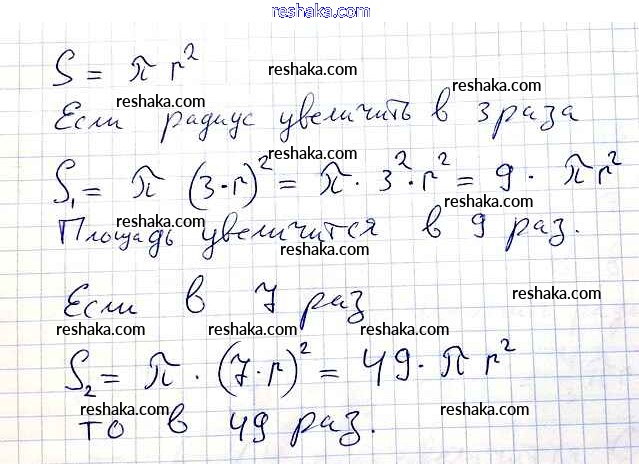 reshaka.com
S = π r²
reshaka.com
reshaka.com
Если радиус увеличить в 3 раза
reshaka.com
S₁ = π (3·r)² = π · 3² · r² = 9 · πr²
reshaka.com reshaka.com
Площадь увеличится в 9 раз.
reshaka.com
Если в 7 раз
reshaka.com reshaka.com reshaka.com
S₂ = π · (7·r)² = 49 · πr²
reshaka.com reshaka.com
то в 49 раз.